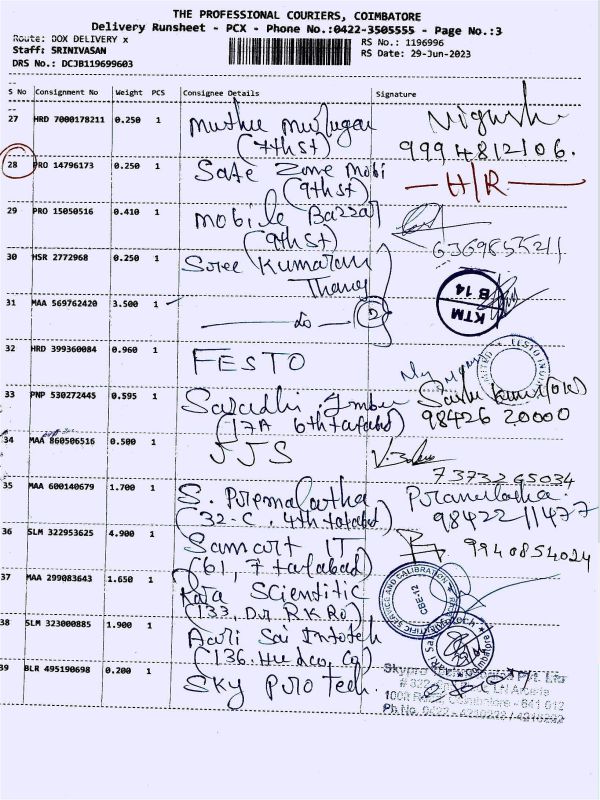 THE PROFESSIONAL COURIERS, COIMBATORE
Delivery Runsheet - PCX - Phone No.:0422-3505555 - Page No.:3
Route: BOX DELIVERY x
Staff: SRINIVASAN
DRS No.: DCJB119699603
RS No.: 1196996
RS Date: 29-Jun-2023
S No Consignment No Weight PCS Consignee Details Signature
27 HRD 7000178211 0.250 1 Muthu Murugan
(7th st)
9994812106.
28 PRO 14796173 0.250 1 Safe Zone Mobi
(9th st) H/R
29 PRO 15050516 0.410 1 Mobile Bazzar
(9th st) 6369855211
30 HSR 2772968 0.250 1 Sree Kumaran
Thanga
KTM
B 14
31 MAA 569762420 3.500 1 do 2
32 HRD 399360084 0.960 1 FESTO
33 PNP 530272445 0.595 1 Saradhi
(17A 6th tatabad) 98426 20000
34 MAA 860506516 0.500 1 JJS
7373265034
35 MAA 600140679 1.700 1 S. Premalatha
(32-C, 4th tatabad) 98422 11477
36 SLM 322953625 4.900 1 Samart IT 9940854024
(61, 7 tatabad)
37 MAA 299083643 1.650 1 Rata Scientific
(133, Dr. R K Ro)
SERVICE AND CALIBRATION
CBE-12
38 SLM 323000885 1.900 1 Aari Sai Infotek
(136, Hudco, Co)
39 BLR 495190698 0.200 1 Sky Pro Tech.
Pvt. Ltd
Coimbatore - 641 012